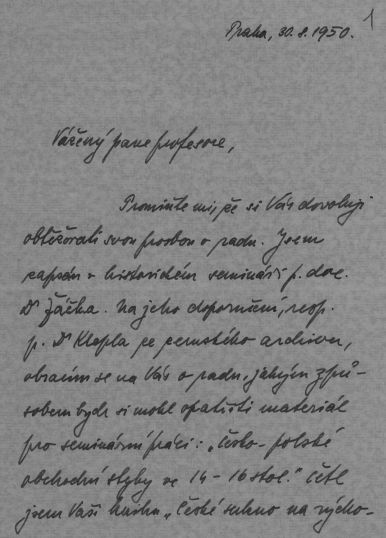 1
Praha, 30.8.1950.
Vážený pane profesore,
Promiňte mi, že si Vás dovoluji
obtěžovati svou prosbou o radu. Jsem
zapsán v historickém semináři p. doc.
Dr Žáčka. Na jeho doporučení, resp.
p. Dr Klepla ze zemského archivu,
obracím se na Vás o radu, jakým způ-
sobem bych si mohl opatřiti materiál
pro seminární práci: „Česko-polské
obchodní styky ve 14-16 stol." Četl
jsem Vaši knihu „České sukno na výcho-